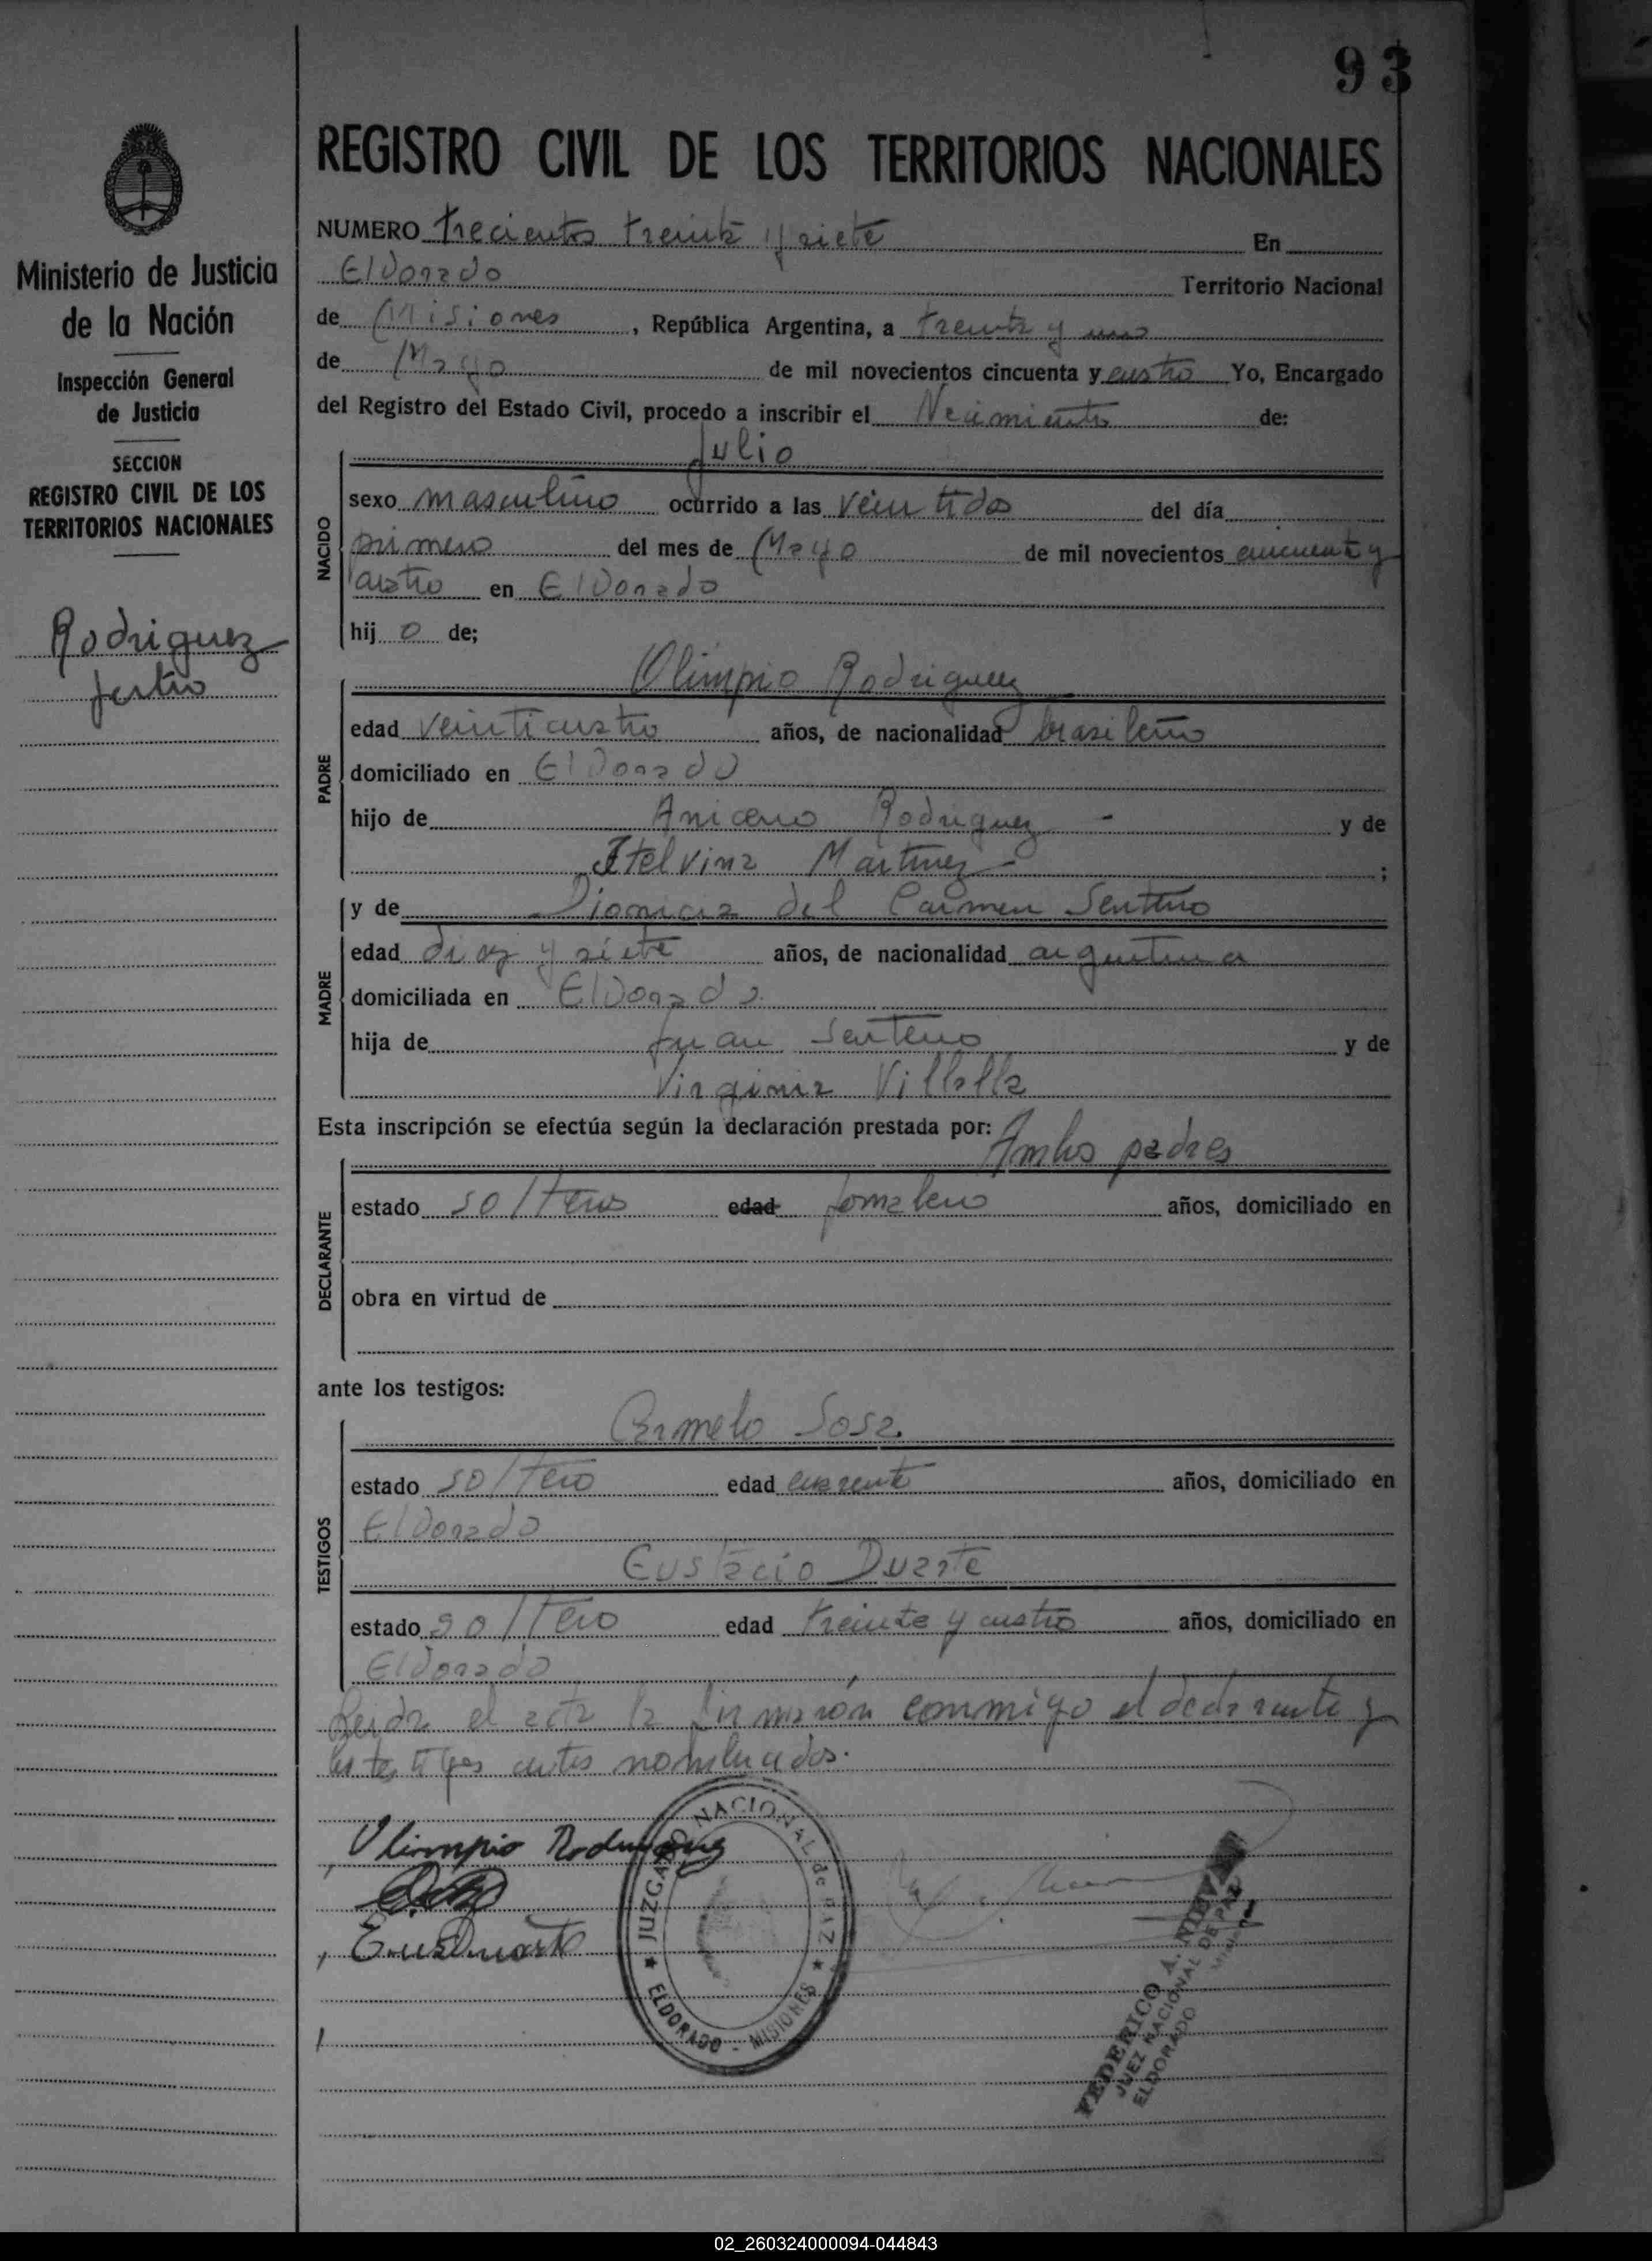 93
REGISTRO CIVIL DE LOS TERRITORIOS NACIONALES
NUMERO trecientos treinta y siete En
Eldorado Territorio Nacional
de Misiones, República Argentina, a treinta y uno
de Mayo de mil novecientos cincuenta y cuatro Yo, Encargado
del Registro del Estado Civil, procedo a inscribir el Nacimiento de:
Ministerio de Justicia
de la Nación
Inspección General
de Justicia
SECCION
REGISTRO CIVIL DE LOS
TERRITORIOS NACIONALES
Rodriguez
Julio
NACIDO
Julio
sexo masculino ocurrido a las veintidos del día
primero del mes de Mayo de mil novecientos cincuenta y
cuatro en Eldorado
hij o de;
PADRE
Olimpio Rodriguez
edad veinticuatro años, de nacionalidad brasileño
domiciliado en Eldorado
hijo de Rodriguez - y de
Etelvina Martinez - ;
MADRE
y de Dionicia del Carmen Senteno
edad diez y siete años, de nacionalidad argentina
domiciliada en Eldorado
hija de Juan Senteno y de
Virginia Villalla
Esta inscripción se efectúa según la declaración prestada por:
Ambos padres
DECLARANTE
estado solteros edad jornalero años, domiciliado en
obra en virtud de
ante los testigos:
TESTIGOS
Carmelo Sosa
estado soltero edad cuarenta años, domiciliado en
Eldorado
Eustacio Duarte
estado soltero edad treinta y cuatro años, domiciliado en
Eldorado
Leida el acta la firmaron conmigo el declarante y
los testigos antes nombrados.
Olimpio Rodriguez
JUZGADO NACIONAL de PAZ
★ ELDORADO - MISIONES ★
FEDERICO A.
JUEZ NACIONAL DE PAZ
ELDORADO
02_260324000094-044843